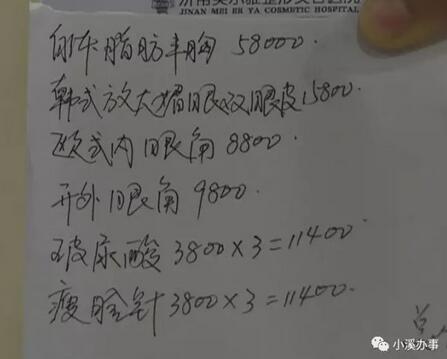 JINAN MEI ER YA COSMETIC HOSPITAL
自体脂肪丰胸 58000.
韩式放大媚眼双眼皮15800.
欧式内眼角 8800.
开外眼角 9800.
玻尿酸 3800×3=11400.
瘦脸针 3800×3=11400.
小溪办事